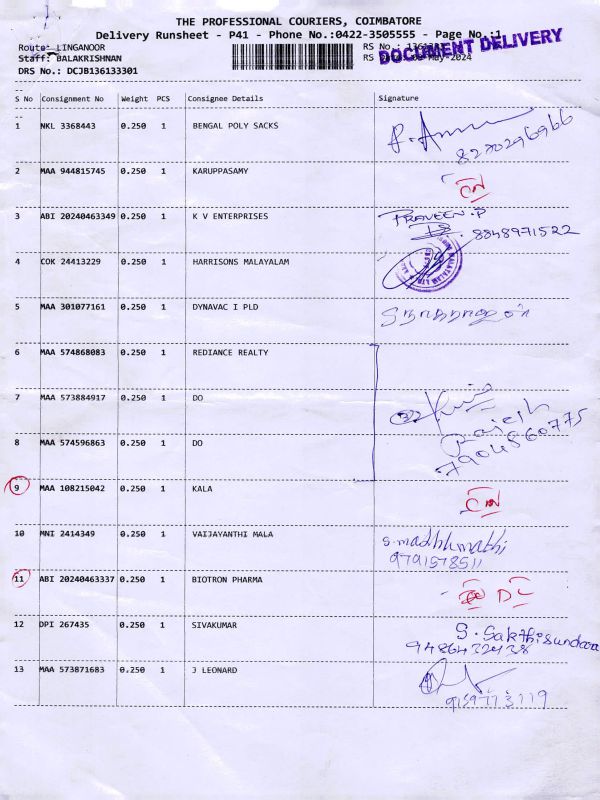 THE PROFESSIONAL COURIERS, COIMBATORE
Delivery Runsheet - P41 - Phone No.:0422-3505555 - Page No.:1
Route: LINGANOOR RS No.:
DOCUMENT DELIVERY
Staff: BALAKRISHNAN RS Date: May-2024
DRS No.: DCJB136133301
S No Consignment No Weight PCS Consignee Details Signature
1 NKL 3368443 0.250 1 BENGAL POLY SACKS
8270296966
2 MAA 944815745 0.250 1 KARUPPASAMY
3 ABI 20240463349 0.250 1 K V ENTERPRISES PRAVEEN.P
8848971522
4 COK 24413229 0.250 1 HARRISONS MALAYALAM
5 MAA 301077161 0.250 1 DYNAVAC I PLD
6 MAA 574868083 0.250 1 REDIANCE REALTY
7 MAA 573884917 0.250 1 DO
Rajesh
8 MAA 574596863 0.250 1 DO 7904860775
9 MAA 108215042 0.250 1 KALA
10 MNI 2414349 0.250 1 VAIJAYANTHI MALA S.madhumathi
9791578511
11 ABI 20240463337 0.250 1 BIOTRON PHARMA DL
12 DPI 267435 0.250 1 SIVAKUMAR S. Sakthisundara
9486432438
13 MAA 573871683 0.250 1 J LEONARD